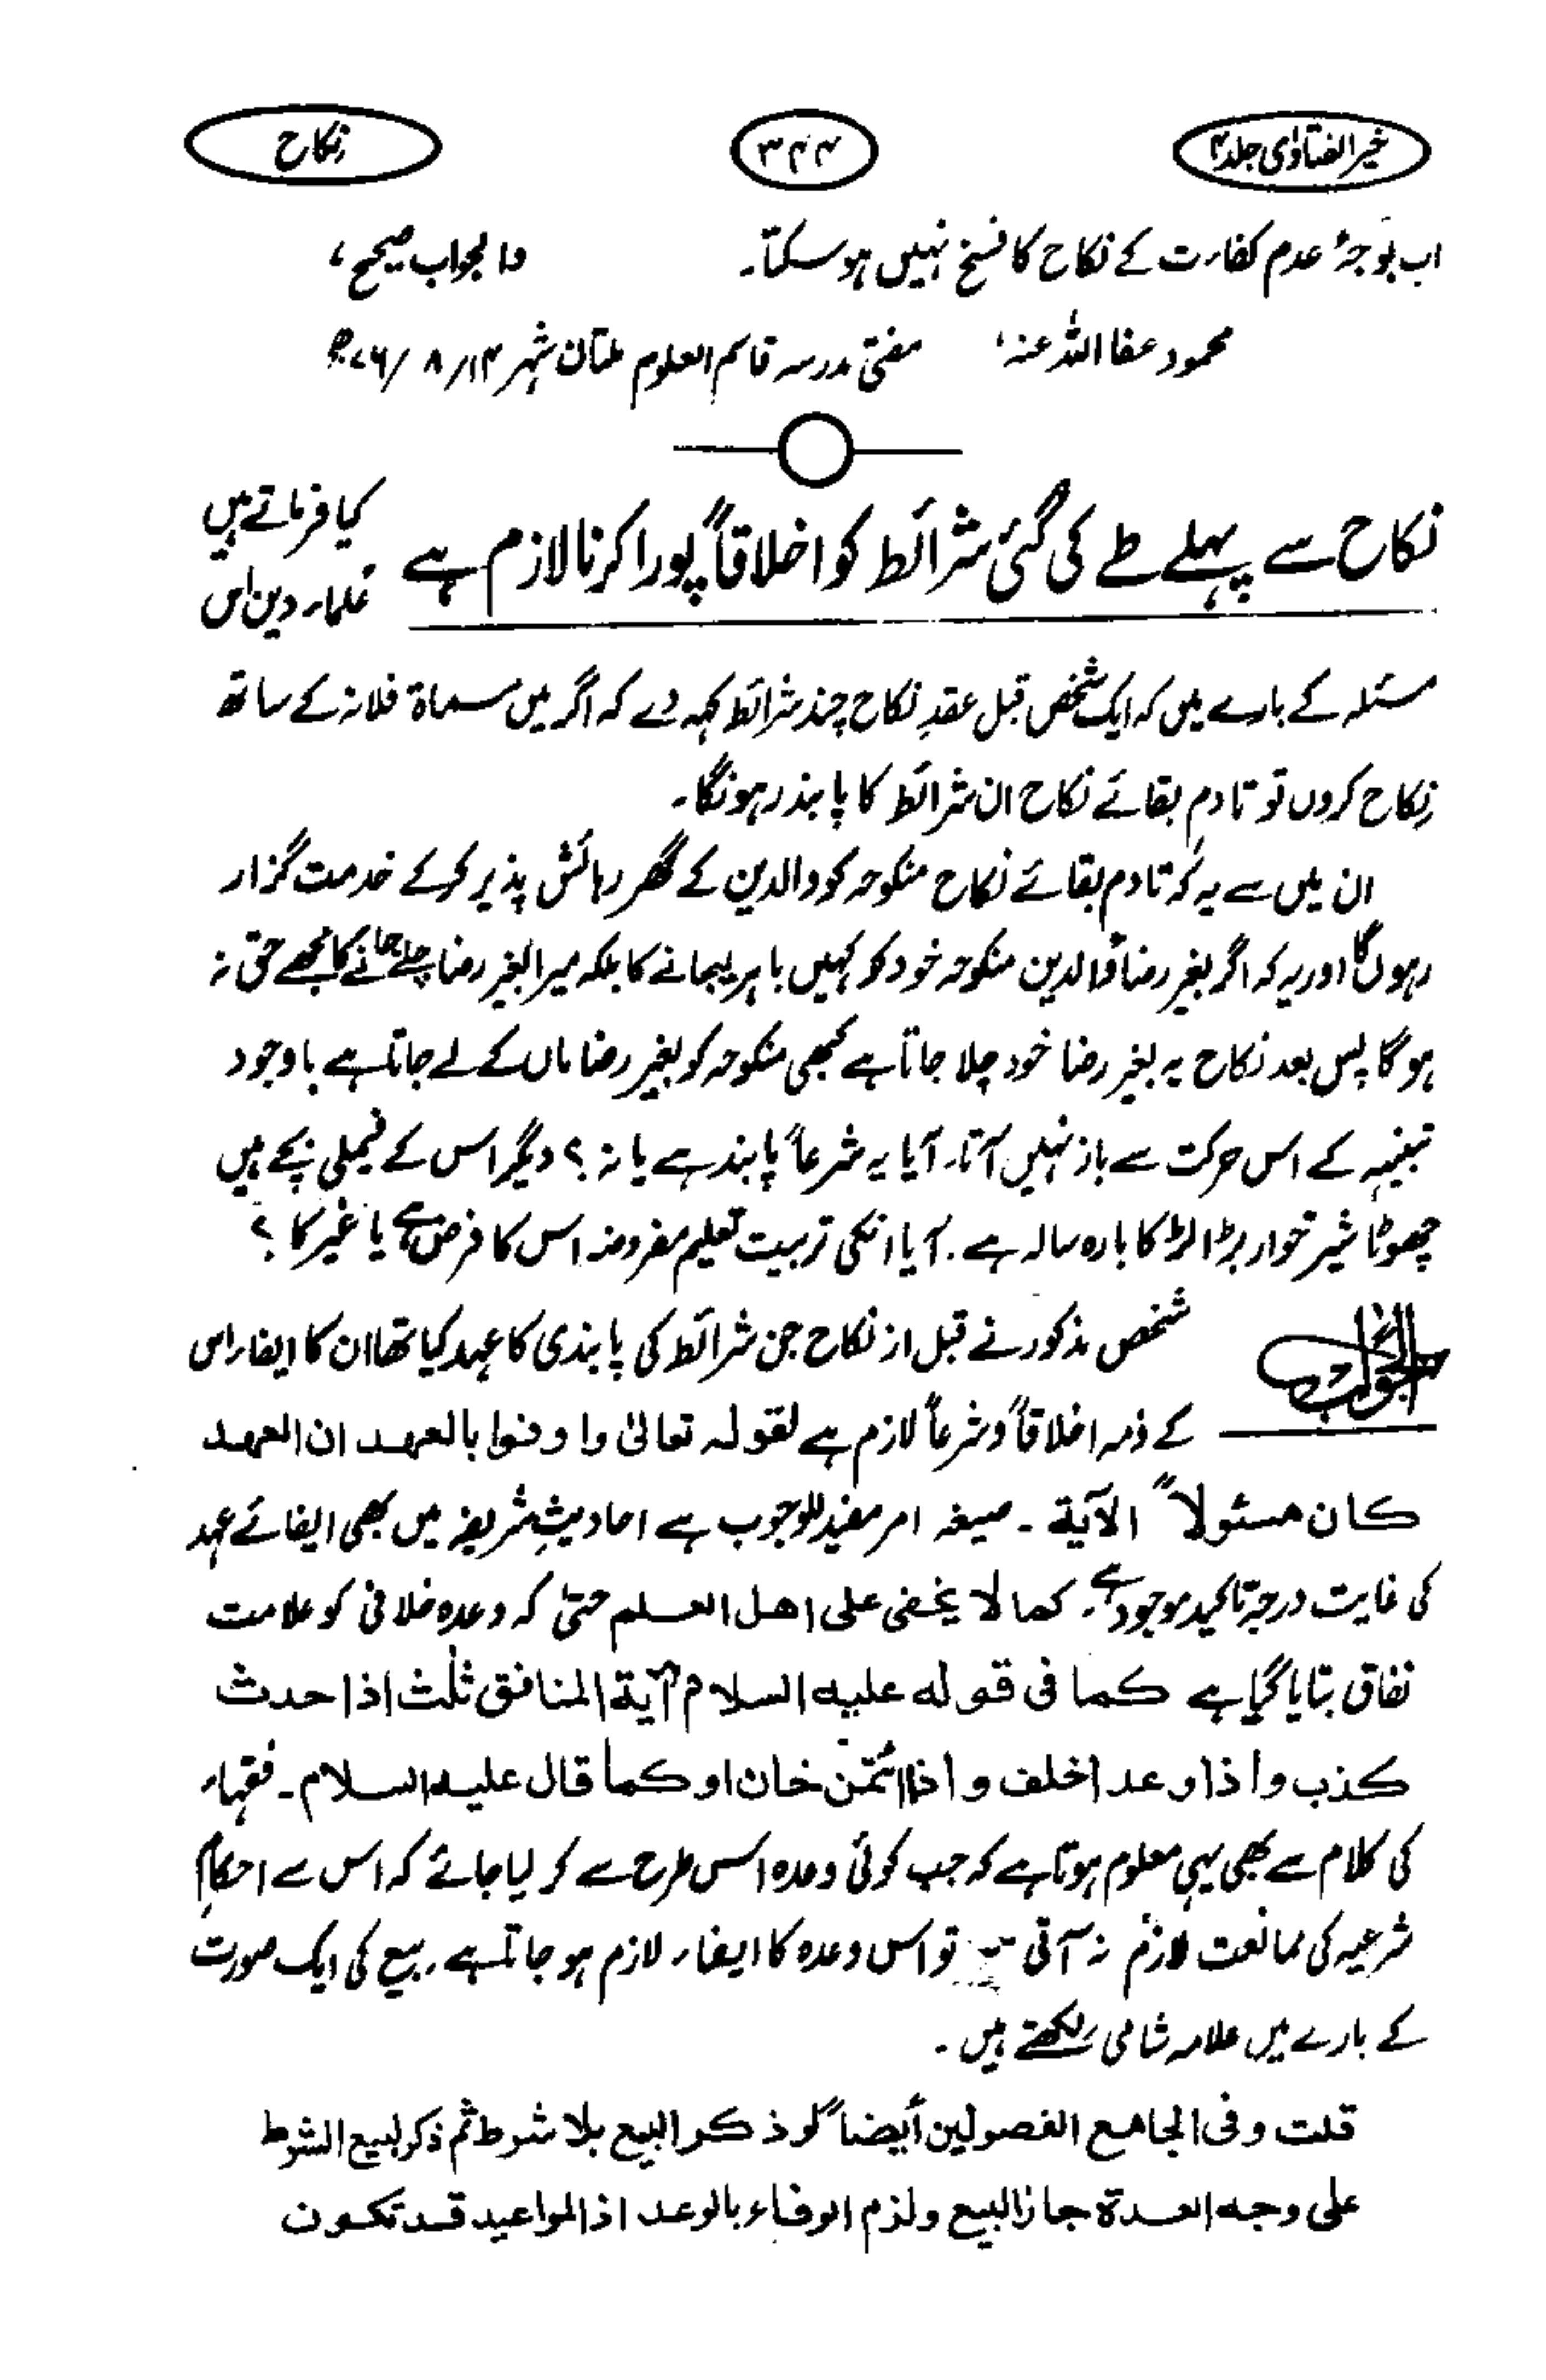 خیر الفتاوٰی جلد ۴
۳۴۴
نکاح
اب بوجہ عدم کفارت کے نکاح کا فسخ نہیں ہو سکتا۔ والجواب صحیح،
محمود عفا اللہ عنہ، مفتی مدرسہ قاسم العلوم ملتان شہر ۱۴/۸/۷۶ھ
نکاح سے پہلے طے کی گئی شرائط کو اخلاقاً پورا کرنا لازم ہے
کیا فرماتے ہیں
علماء دین اس
مسئلہ کے بارے میں کہ ایک شخص قبل عقدِ نکاح چند شرائط کہہ دے کہ اگر میں مسماۃ فلانہ کے ساتھ
نکاح کروں تو تادمِ بقائے نکاح ان شرائط کا پابند رہونگا۔
ان میں سے یہ کہ تادم بقائے نکاح منکوحہ کو والدین کے گھر رہائش پذیر کر کے خدمت گزار
رہوں گا اور یہ کہ اگر بغیر رضا والدین منکوحہ خود کو کہیں باہر لیجانے کا بلکہ میرا بغیر رضا چلے جانے کا مجھے حق نہ
ہو گا پس بعد نکاح یہ بغیر رضا خود چلا جاتا ہے کبھی منکوحہ کو بغیر رضا ماں کے لے جاتا ہے باوجود
تنبیہ کے اس حرکت سے باز نہیں آتا۔ آیا یہ شرعاً پابند ہے یا نہ؟ دیگر اس کے فیملی بچے ہیں
چھوٹا شیر خوار بڑا لڑکا بارہ سالہ ہے۔ آیا انکی تربیت تعلیم مفروضہ اس کا فرض ہے یا غیر کا؟
الجواب
شخص مذکور نے قبل از نکاح جن شرائط کی پابندی کا عہد کیا تھا ان کا ایفاء اس
کے ذمہ اخلاقاً و شرعاً لازم ہے لقولہ تعالیٰ واوفوا بالعهد ان العهد
كان مسئولاً الآية۔ صیغہ امر مفید للوجوب ہے احادیثِ شریفہ میں بھی ایفائے عہد
کی غایت درجہ تاکید موجود ہے۔ كما لا يخفى على اهل العلم حتیٰ کہ وعدہ خلافی کو علامت
نفاق بتایا گیا ہے كما فى قوله عليه السلام آية المنافق ثلٰث اذا حدث
كذب واذا وعد اخلف واذا ائتمن خان او كما قال عليه السلام۔ فقہاء
کی کلام سے بھی یہی معلوم ہوتا ہے کہ جب کوئی وعدہ اس طرح سے کر لیا جائے کہ اس سے احکامِ
شرعیہ کی ممانعت لازم نہ آتی تو اس وعدہ کا ایفاء لازم ہو جاتا ہے۔ بیع کی ایک صورت
کے بارے میں علامہ شامی لکھتے ہیں۔
قلت وفى الجامع الفصولين أيضاً لو ذكر البيع بلا شرط ثم ذكر لبيع الشرط
على وجه العدة جاز البيع ولزم الوفاء بالوعد اذ المواعيد قد تكون